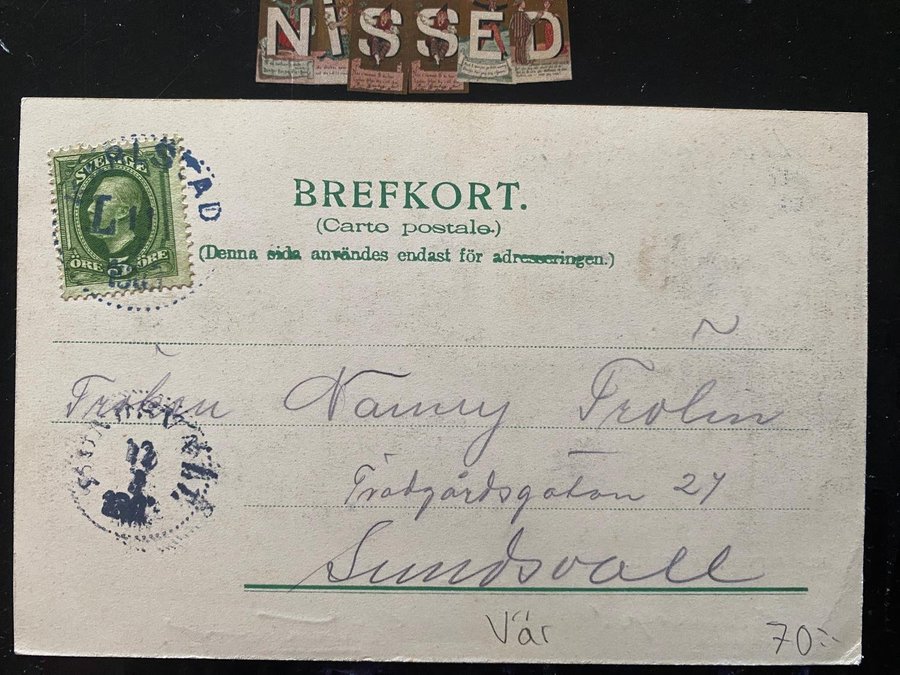 NISSED
SVERIGE
5
ÖRE ÖRE
BREFKORT.
(Carte postale.)
(Denna sida användes endast för adresseringen.)
Fröken Nanny Frölin
Trädgårdsgatan 27
Sundsvall
12
Vär 70:-